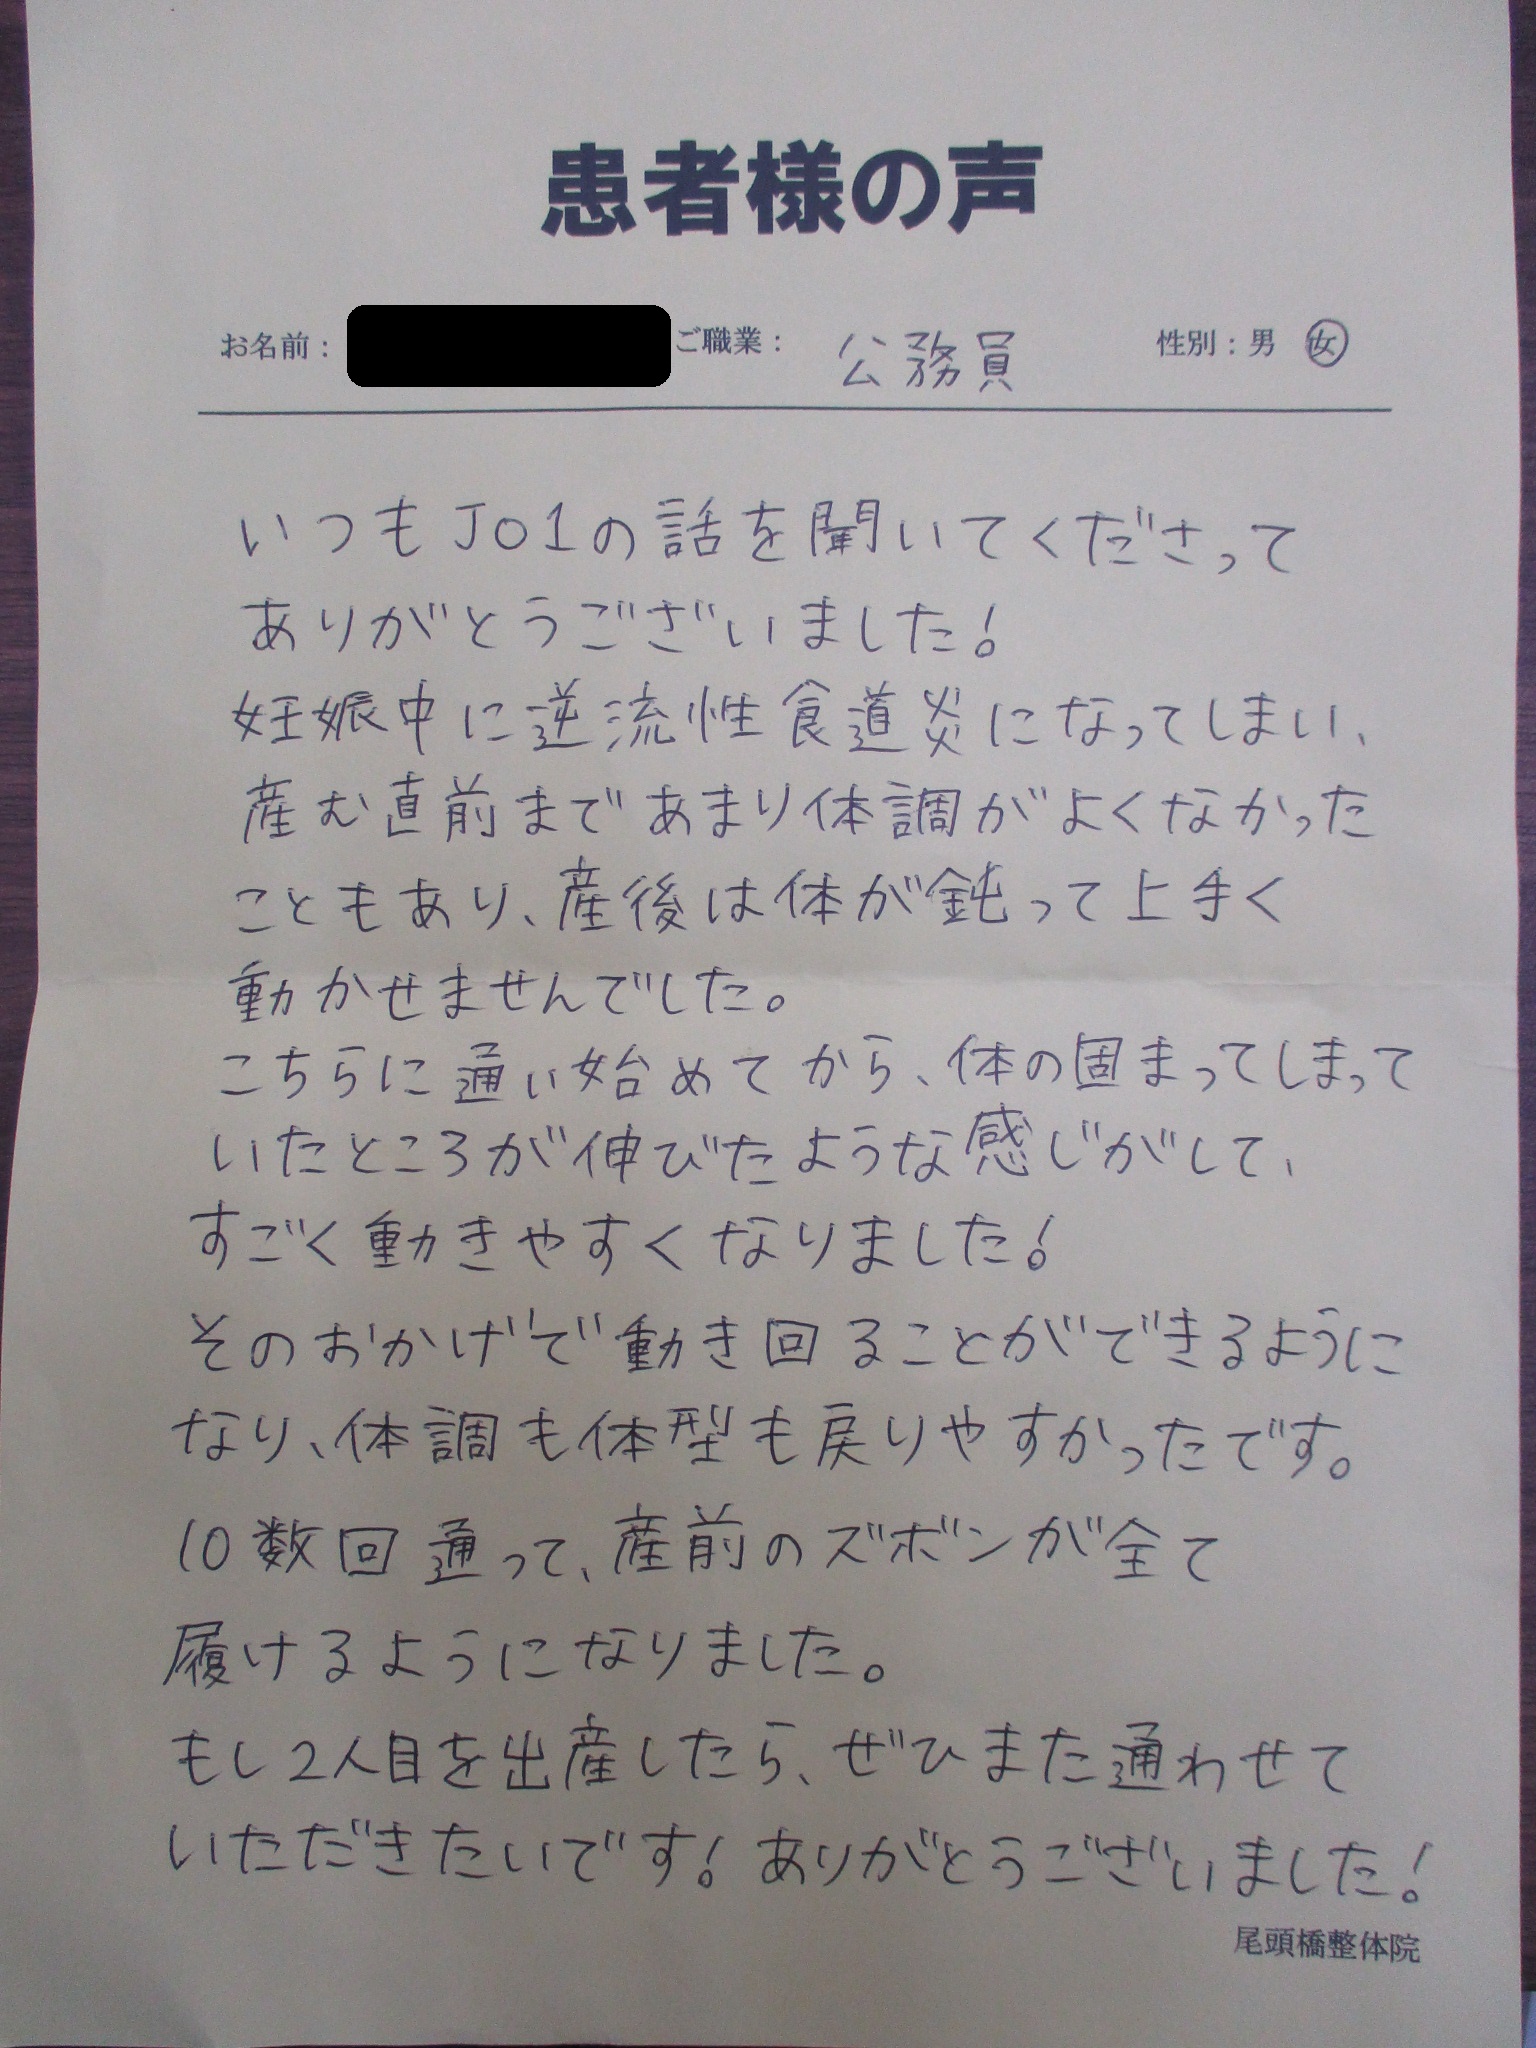 患者様の声
お名前： ご職業： 公務員 性別：男 女
いつもJO1の話を聞いてくださって
ありがとうございました!
妊娠中に逆流性食道炎になってしまい、
産む直前まであまり体調がよくなかった
こともあり、産後は体が鈍って上手く
動かせませんでした。
こちらに通い始めてから、体の固まってしまって
いたところが伸びたような感じがして、
すごく動きやすくなりました!
そのおかげで動き回ることができるように
なり、体調も体型も戻りやすかったです。
10数回通って、産前のズボンが全て
履けるようになりました。
もし2人目を出産したら、ぜひまた通わせて
いただきたいです!ありがとうございました!
尾頭橋整体院